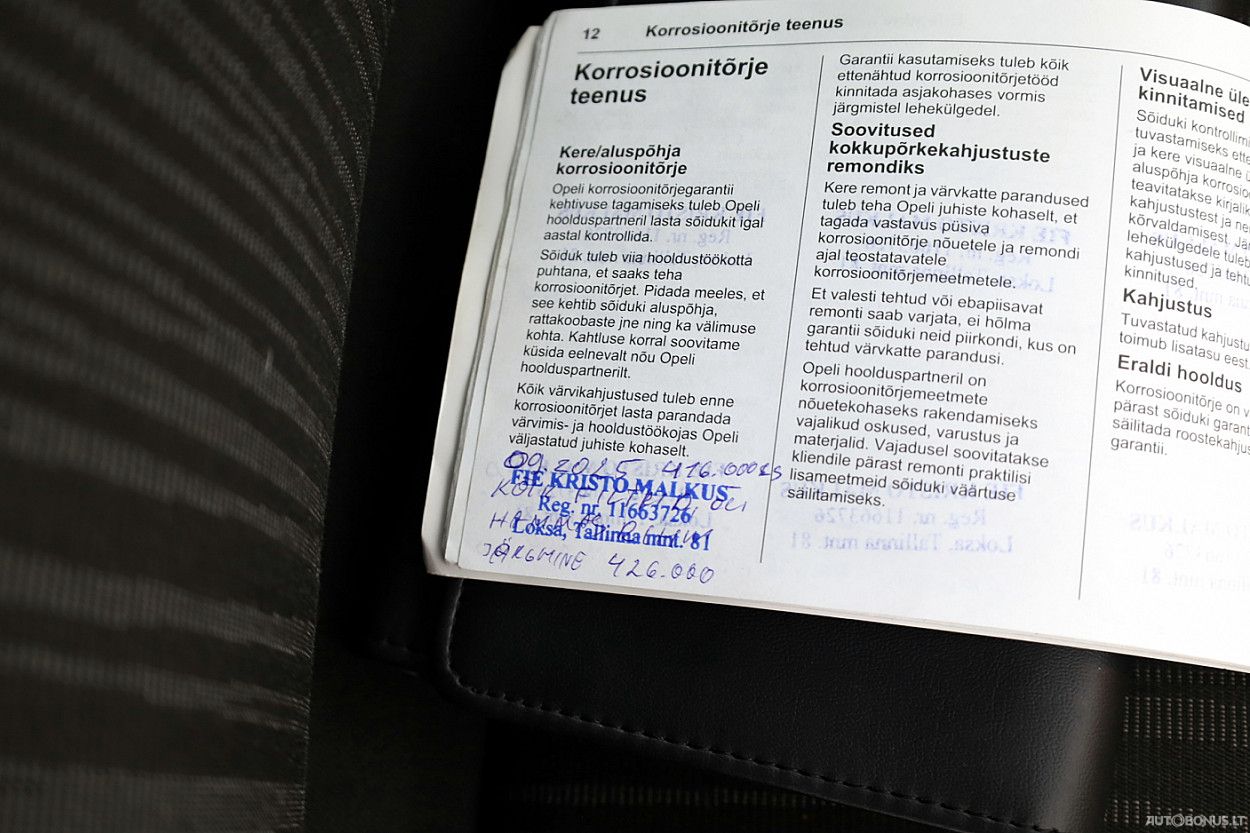 12 Korrosioonitõrje teenus
Korrosioonitõrje
teenus
Kere/aluspõhja
korrosioonitõrje
Opeli korrosioonitõrjegarantii
kehtivuse tagamiseks tuleb Opeli
hoolduspartneril lasta sõidukit igal
aastal kontrollida.
Sõiduk tuleb viia hooldustöökotta
puhtana, et saaks teha
korrosioonitõrjet. Pidada meeles, et
see kehtib sõiduki aluspõhja,
rattakoobaste jne ning ka välimuse
kohta. Kahtluse korral soovitame
küsida eelnevalt nõu Opeli
hoolduspartnerilt.
Kõik värvikahjustused tuleb enne
korrosioonitõrjet lasta parandada
värvimis- ja hooldustöökojas Opeli
väljastatud juhiste kohaselt.
09.2015 416.000
FIE KRISTO MALKUS
KÕIK FILTRID ÕLI
Reg. nr. 11663726
Loksa, Tallinna mnt. 81
JÄRGMINE 426.000
Garantii kasutamiseks tuleb kõik
ettenähtud korrosioonitõrjetööd
kinnitada asjakohases vormis
järgmistel lehekülgedel.
Soovitused
kokkupõrkekahjustuste
remondiks
Kere remont ja värvkatte parandused
tuleb teha Opeli juhiste kohaselt, et
tagada vastavus püsiva
korrosioonitõrje nõuetele ja remondi
ajal teostatavatele
korrosioonitõrjemeetmetele.
Et valesti tehtud või ebapiisavat
remonti saab varjata, ei hõlma
garantii sõiduki neid piirkondi, kus on
tehtud värvkatte parandusi.
Opeli hoolduspartneril on
korrosioonitõrjemeetmete
nõuetekohaseks rakendamiseks
vajalikud oskused, varustus ja
materjalid. Vajadusel soovitatakse
kliendile pärast remonti praktilisi
lisameetmeid sõiduki väärtuse
säilitamiseks.
Visuaalne üle
kinnitamised
Sõiduki kontrollimi
tuvastamiseks ette
ja kere visuaalne ü
aluspõhja korrosioo
teavitatakse kirjalik
kahjustustest ja ne
kõrvaldamisest. Jär
lehekülgedele tuleb
kahjustused ja teht
kinnitused.
Kahjustus
Tuvastatud kahjustu
toimub lisatasu eest.
Eraldi hooldus
Korrosioonitõrje on v
pärast sõiduki garant
säilitada roostekahjus
garantii.
AUTOBONUS.LT